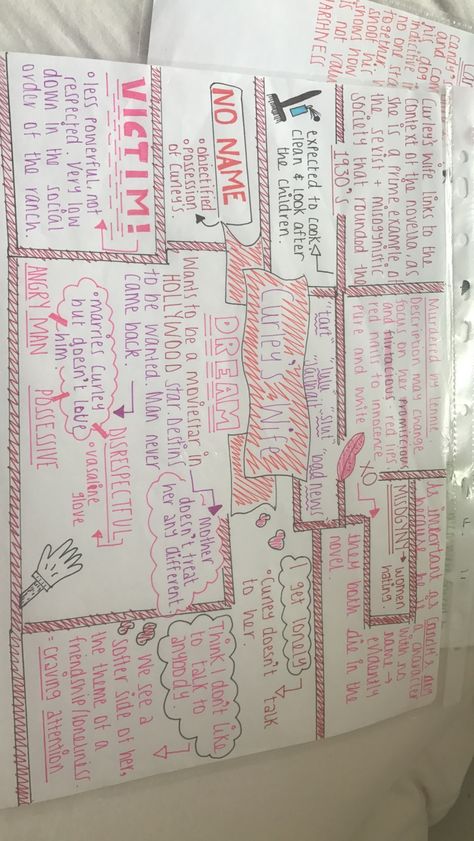 Curley's Wife
Curley's wife links to the
context of the novella, as
she is a prime example of
the sexist + misogynistic
society that rounded the
1930's
expected to cook,
clean & look after
the children.
NO NAME
• objectified
• Possession
of Curley's.
VICTIM!
• less powerful, not
respected. Very low
down in the social
order of the ranch.
Murdered by Lennie.
Description may change
focus on her promiscious
and flirtacious red lips,
red nails to innocence
Pure and white
XO
"tart"
"slut"
"bad news"
DREAM
Wants to be a moviestar in
HOLLYWOOD star. Destins
to be wanted. Man never
came back.
Mother
doesn't treat
her any different
DISRESPECTFUL
• marries Curley
but doesn't love
him.
• vasaline
glove
ANGRY MAN
POSSESSIVE
As important as candy's dog
character
with no
name →
evauntly
they both die in the
novel.
MYDGINY → women
hating.
I get lonely
• Curley doesn't talk
to her.
Think I don't like
to talk to
anybody.
We see a
softer side of her,
the theme of a
friendship/lonliness.
= craving attention
candy
and
his dog
no one
together.
shoot her
shows how
is not
HARSHNESS